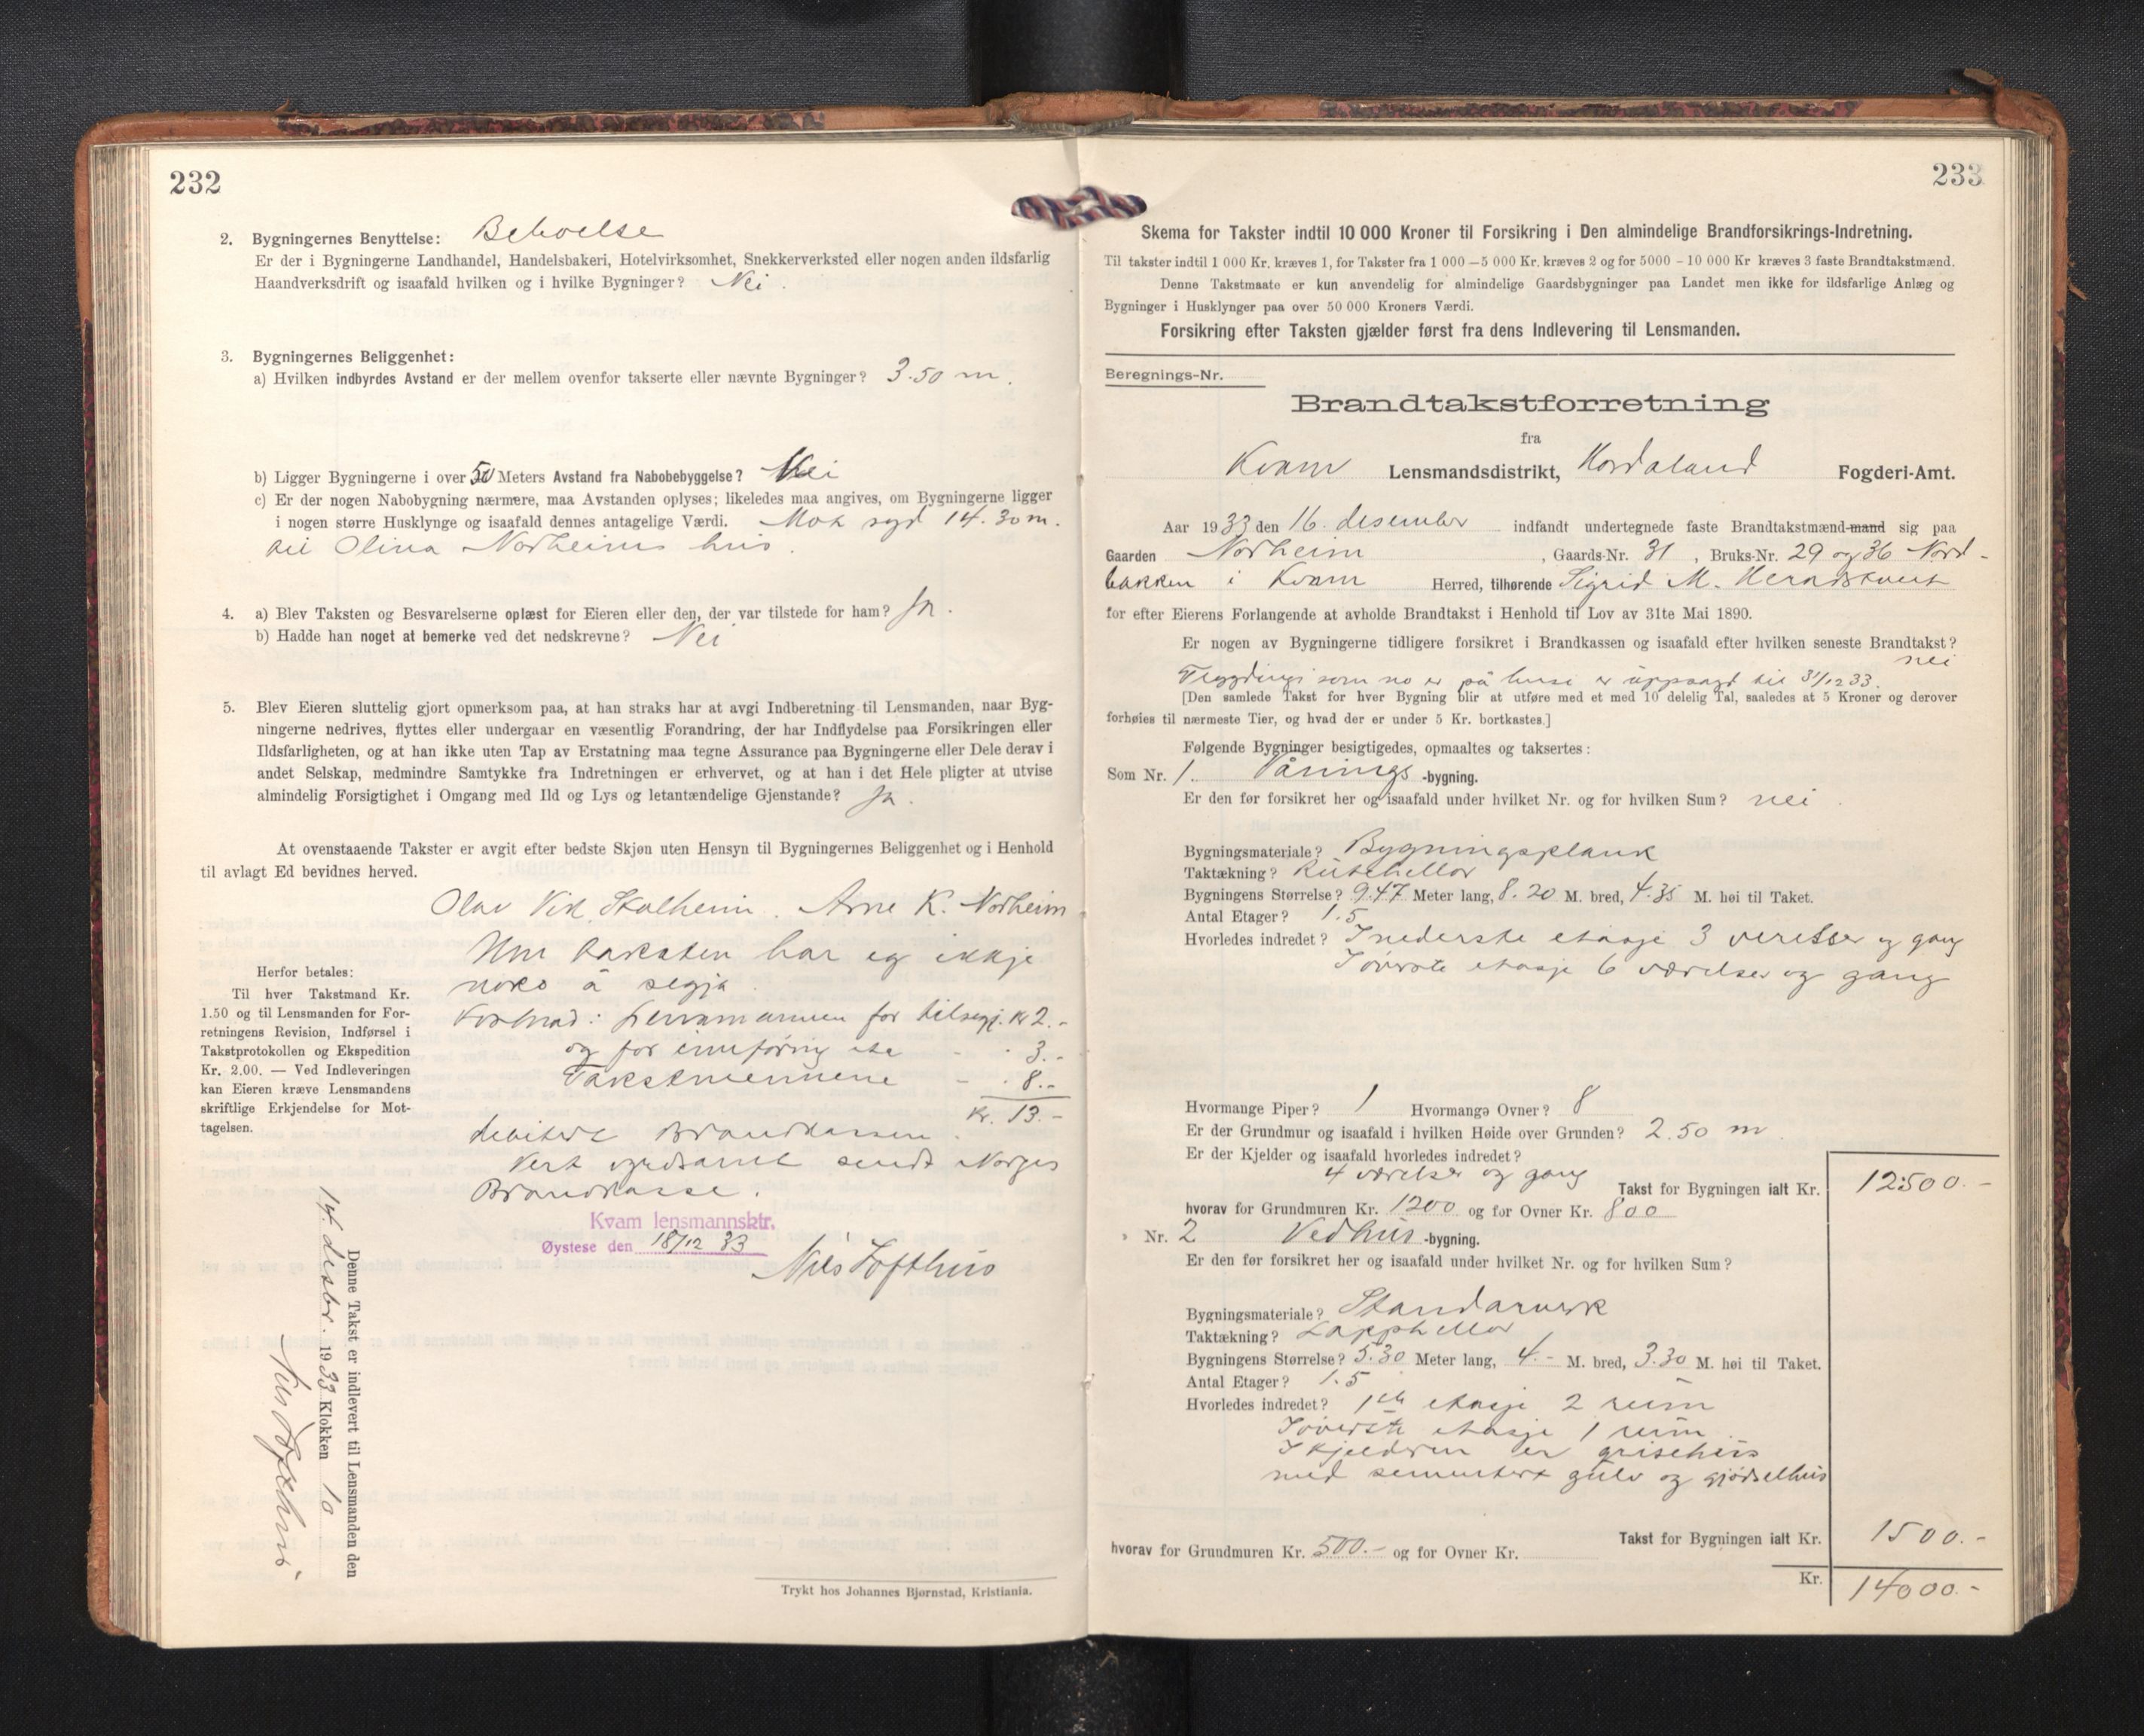 232
2. Bygningernes Benyttelse: Beboelse
Er der i Bygningerne Landhandel, Handelsbakeri, Hotelvirksomhet, Snekkerverksted eller nogen anden ildsfarlig
Haandverksdrift og isaafald hvilken og i hvilke Bygninger? Nei.
3. Bygningernes Beliggenhet:
a) Hvilken indbyrdes Avstand er der mellem ovenfor takserte eller nævnte Bygninger? 3.50 m.
b) Ligger Bygningerne i over 50 Meters Avstand fra Nabobebyggelse? Nei
c) Er der nogen Nabobygning nærmere, maa Avstanden oplyses; likeledes maa angives, om Bygningerne ligger
i nogen større Husklynge og isaafald dennes antagelige Værdi. Mot syd 14.30 m.
til Olina Norheims hus.
4. a) Blev Taksten og Besvarelserne oplæst for Eieren eller den, der var tilstede for ham? Ja.
b) Hadde han noget at bemerke ved det nedskrevne? Nei
5. Blev Eieren sluttelig gjort opmerksom paa, at han straks har at avgi Indberetning til Lensmanden, naar Byg-
ningerne nedrives, flyttes eller undergaar en væsentlig Forandring, der har Indflydelse paa Forsikringen eller
Ildsfarligheten, og at han ikke uten Tap av Erstatning maa tegne Assurance paa Bygningerne eller Dele derav i
andet Selskap, medmindre Samtykke fra Indretningen er erhvervet, og at han i det Hele pligter at utvise
almindelig Forsigtighet i Omgang med Ild og Lys og letantændelige Gjenstande? Ja.
At ovenstaaende Takster er avgit efter bedste Skjøn uten Hensyn til Bygningernes Beliggenhet og i Henhold
til avlagt Ed bevidnes herved.
Olav Vik Skalheim. Arne K. Norheim
Um taksten har eg ikkje
noko å segja.
Kostnad: Lensmannen for tilsegj. kr 2.-
og for innføring etc - . 3.-
Takstmennene - . 8.-
Kr. 13.-
debitert Brandkassen.
Vert vyrdsamt sendt Norges
Brandkasse.
Kvam lensmannsktr.
Øystese den 18/12 33
Nils Lofthus
Herfor betales:
Til hver Takstmand Kr.
1.50 og til Lensmanden for For-
retningens Revision, Indførsel i
Takstprotokollen og Ekspedition
Kr. 2.00. — Ved Indleveringen
kan Eieren kræve Lensmandens
skriftlige Erkjendelse for Mot-
tagelsen.
Denne Takst er indlevert til Lensmanden den
14. desbr. 1933 Klokken 10
Nils Lofthus
Trykt hos Johannes Bjørnstad, Kristiania.
233
Skema for Takster indtil 10 000 Kroner til Forsikring i Den almindelige Brandforsikrings-Indretning.
Til takster indtil 1 000 Kr. kræves 1, for Takster fra 1 000 — 5 000 Kr. kræves 2 og for 5000 - 10 000 Kr kræves 3 faste Brandtakstmænd.
Denne Takstmaate er kun anvendelig for almindelige Gaardsbygninger paa Landet men ikke for ildsfarlige Anlæg og
Bygninger i Husklynger paa over 50 000 Kroners Værdi.
Forsikring efter Taksten gjælder først fra dens Indlevering til Lensmanden.
Beregnings-Nr.
Brandtakstforretning
fra
Kvam Lensmandsdistrikt, Hordaland Fogderi-Amt.
Aar 1933 den 16. desember indfandt undertegnede faste Brandtakstmænd-mand sig paa
Gaarden Norheim, Gaards-Nr. 31, Bruks-Nr. 29 og 36 Nord-
bakken i Kvam Herred, tilhørende Sigrid M.
for efter Eierens Forlangende at avholde Brandtakst i Henhold til Lov av 31te Mai 1890.
Er nogen av Bygningerne tidligere forsikret i Brandkassen og isaafald efter hvilken seneste Brandtakst?
nei
Trygdingi som no er på huse er uppsagt til 31/12 33.
[Den samlede Takst for hver Bygning blir at utføre med et med 10 delelig Tal, saaledes at 5 Kroner og derover
forhøies til nærmeste Tier, og hvad der er under 5 Kr. bortkastes.]
Følgende Bygninger besigtigedes, opmaaltes og taksertes:
Som Nr. 1. Vånings-bygning.
Er den før forsikret her og isaafald under hvilket Nr. og for hvilken Sum? nei.
Bygningsmateriale? Bygningsplank
Taktækning? Rutehellor
Bygningens Størrelse? 9.47 Meter lang, 8.20 M. bred, 4.35 M. høi til Taket.
Antal Etager? 1.5
Hvorledes indredet? I nederste etasje 3 verelser og gang
I øverste etasje 6 værelser og gang
Hvormange Piper? 1 Hvormange Ovner? 8
Er der Grundmur og isaafald i hvilken Høide over Grunden? 2.50 m
Er der Kjelder og isaafald hvorledes indredet?
4 værelser og gang
Takst for Bygningen ialt Kr. 12500.-
hvorav for Grundmuren Kr. 1200 og for Ovner Kr. 800
Nr. 2 Vedhus-bygning.
Er den før forsikret her og isaafald under hvilket Nr. og for hvilken Sum?
Bygningsmateriale? Standarverk
Taktækning? Lapphellor
Bygningens Størrelse? 5.30 Meter lang, 4.- M. bred, 3.30 M. høi til Taket.
Antal Etager? 1.5
Hvorledes indredet? 1ste etasje 2 rum
I øverste etasje 1 rum
I kjelderen er grisehus
med sementert gulv og gjødselhus
Takst for Bygningen ialt Kr. 1500.-
hvorav for Grundmuren Kr. 500.- og for Ovner Kr.
Kr. 14000.-